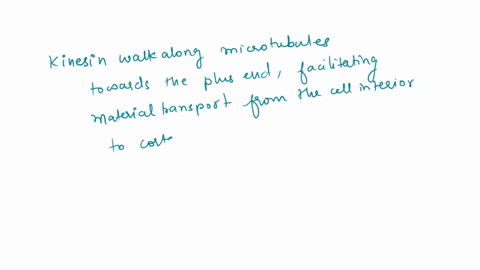 Kinesin walk along microtubules
towards the plus end, facilitating
material transport from the cell interior
to cort